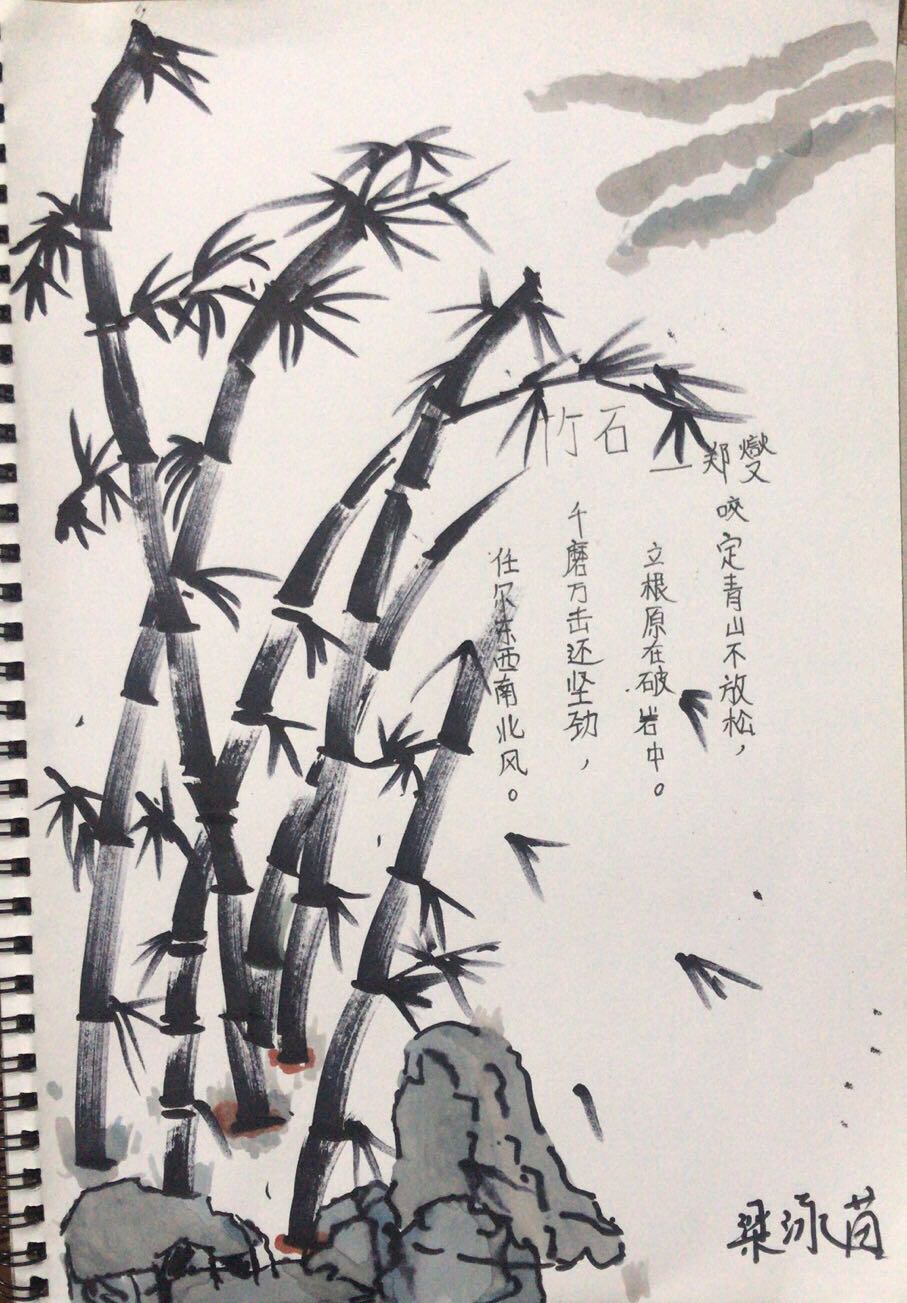 竹石
—郑燮
咬定青山不放松，
立根原在破岩中。
千磨万击还坚劲，
任尔东西南北风。
梁泳茵